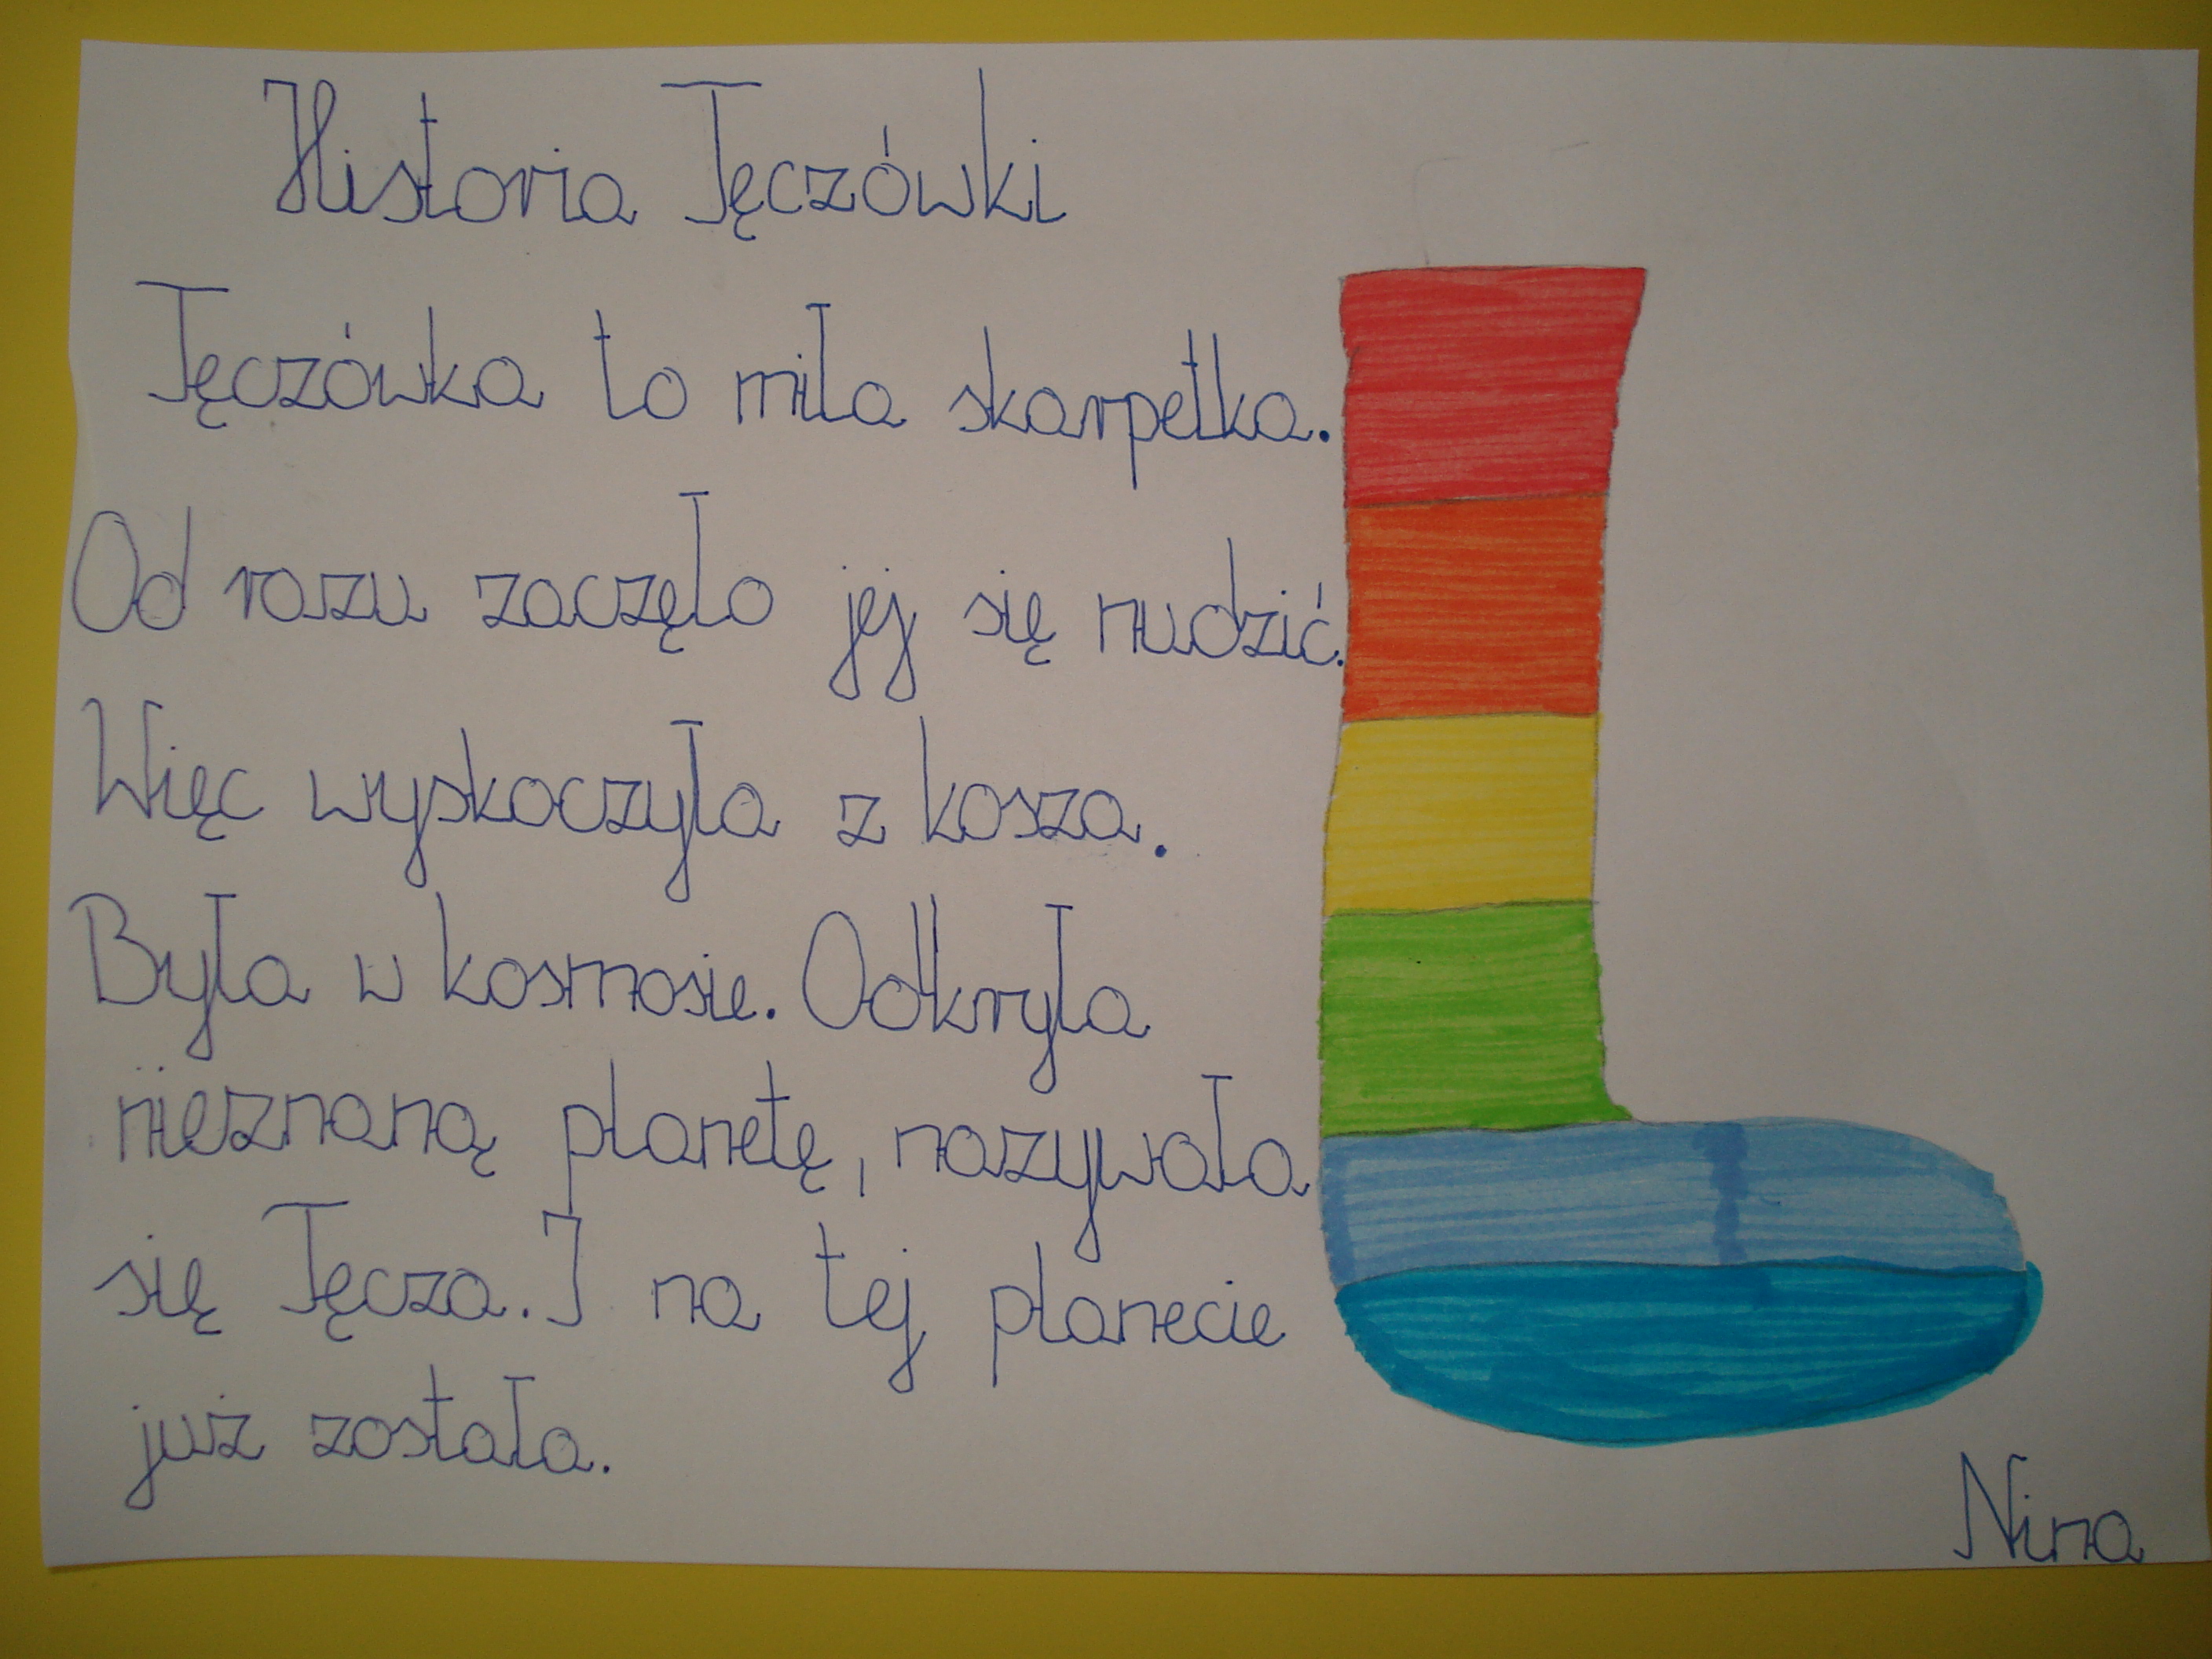 Historia Tęczówki
Tęczówka to miła skarpetka.
Od razu zaczęło jej się nudzić.
Więc wyskoczyła z kosza.
Była w kosmosie. Odkryła
nieznaną planetę, nazywała
się Tęcza. I na tej planecie
już została.
Nina